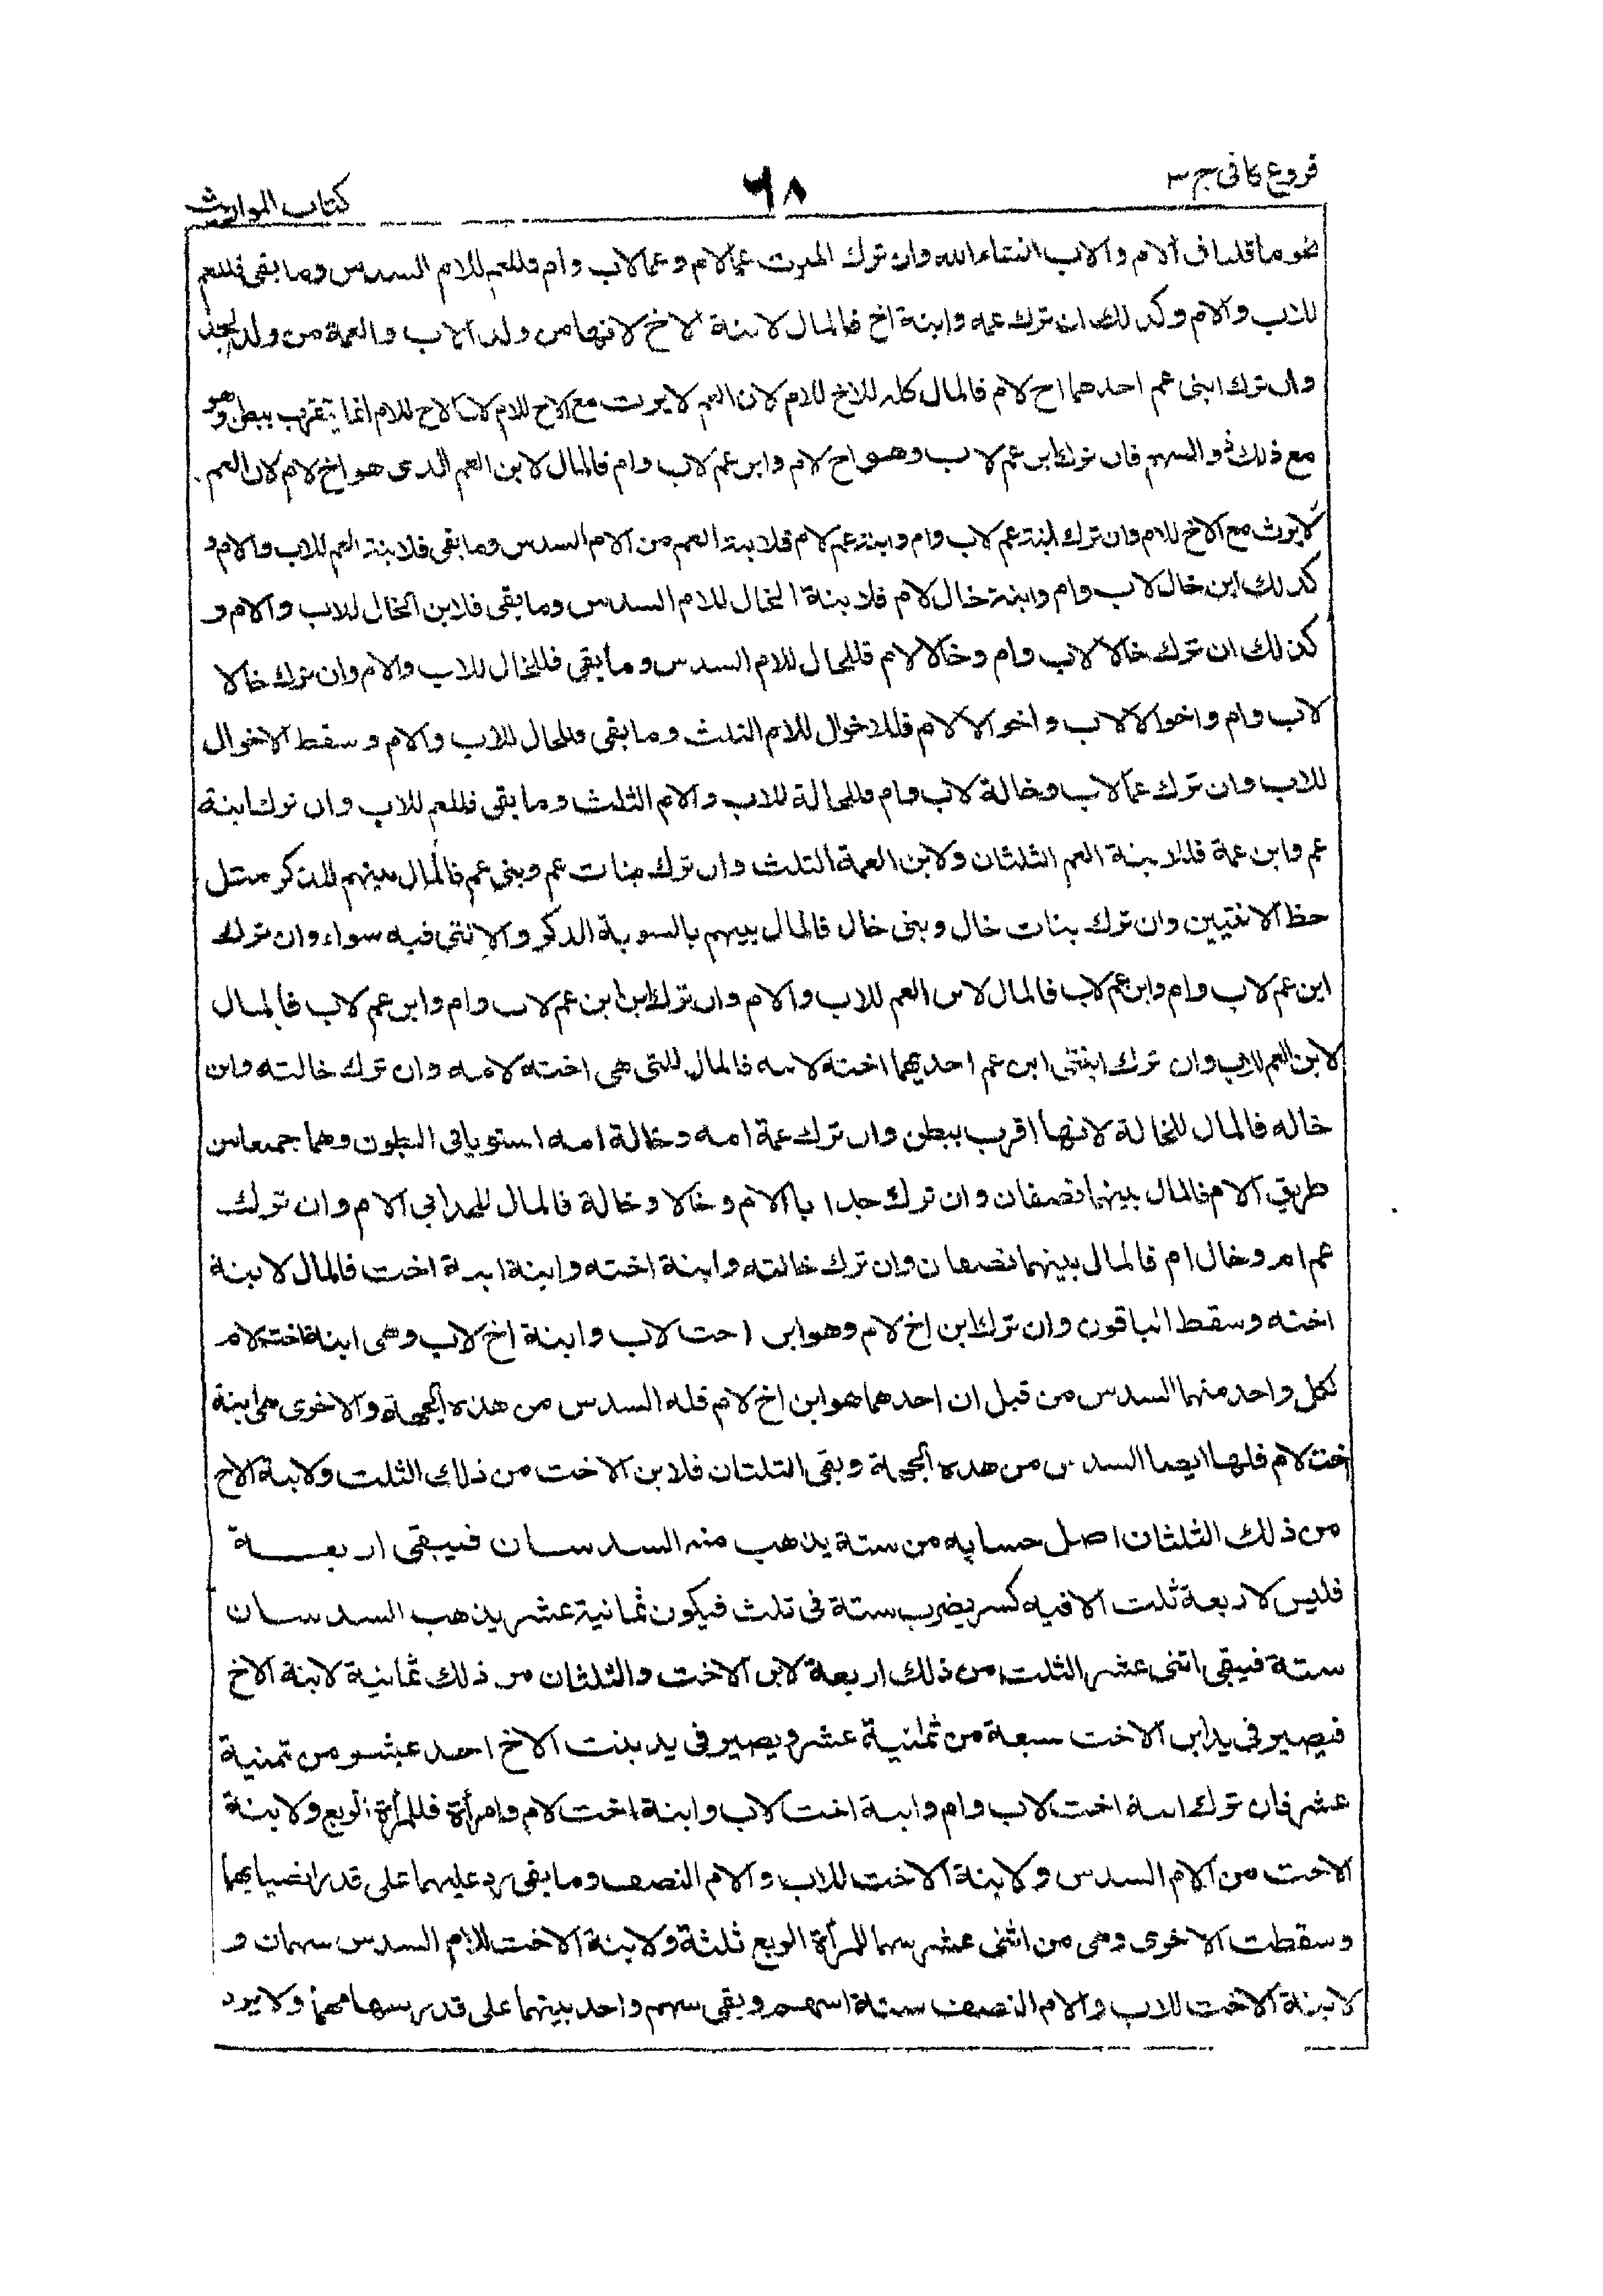 فروع كافى ج ٣
٦٨
كتاب المواريث
نحو ما قلنا فى الام والاب انشاء الله وان ترك الميت عما لام وعما لاب وام فللعم للام السدس وما بقى فللعم
للاب والام وكذلك ان ترك عمه وابنة اخ فالمال لابنة الاخ لانها من ولد الاب والعمة من ولد الجد
وان ترك ابنى عم احدهما اخ لام فالمال كله للاخ للام لان العم لا يرث مع الاخ للام لان الاخ للام انما يتقرب ببطن وهو
مع ذلك ذو السهم فان ترك ابن عم لاب وهو اخ لام وابن عم لاب وام فالمال لابن العم الذى هو اخ لام لان العم
لا يرث مع الاخ للام وان ترك ابنة عم لاب وام وابنة عم لام فلابنة العم من الام السدس وما بقى فلابنة العم للاب والام و
كذلك ابن خال لاب وام وابنة خال لام فلابنة الخال للام السدس وما بقى فلابن الخال للاب والام و
كذلك ان ترك خالا لاب وام وخالا لام فللخال للام السدس وما بقى فللخال للاب والام وان ترك خالا
لاب وام واخوالا لاب واخوالا لام فللاخوال للام الثلث وما بقى فللخال للاب والام وسقط الاخوال
للاب وان ترك عما لاب وخالة لاب وام فللخالة للاب والام الثلث وما بقى فللعم للاب وان ترك ابنة
عم وابن عمة فللابنة العم الثلثان ولابن العمة الثلث وان ترك بنات عم وبنى عم فالمال بينهم للذكر مثل
حظ الانثيين وان ترك بنات خال وبنى خال فالمال بينهم بالسوية الذكر والانثى فيه سواء وان ترك
ابن عم لاب وام وابن عم لاب فالمال لابن العم للاب والام وان ترك ابن ابن عم لاب وام وابن عم لاب فالمال
لابن العم للاب وان ترك ابنتى ابن عم احديهما اخته لامه فالمال للتى هى اخته لامه وان ترك خالته وابن
خاله فالمال للخالة لانها اقرب ببطن وان ترك عمة امه وخالة امه استويا فى البطون وهما جميعا من
طريق الام فالمال بينهما نصفان وان ترك جدا با الام وخالا وخالة فالمال للجد ابى الام وان ترك
عم ام وخال ام فالمال بينهما نصفان وان ترك خالته وابنة اخته وابنة ابنة اخت فالمال لابنة
اخته وسقط الباقون وان ترك ابن اخ لام وهو ابن اخت لاب وابنة اخ لاب وهى ابنة اخت لام
لكل واحد منهما السدس من قبل ان احدهما هو ابن اخ لام فله السدس من هذه الجهة والاخرى هى ابنة
اخت لام فلها ايضا السدس من هذه الجهة وبقى الثلثان فلابن الاخت من ذلك الثلث ولابنة الاخ
من ذلك الثلثان اصل حسابه من ستة يذهب منه السدسان فيبقى اربعة
فليس لاربعة ثلث الا فيه كسر يضرب ستة فى ثلث فيكون ثمانية عشر يذهب السدسان
ستة فيبقى اثنى عشر الثلث من ذلك اربعة لابن الاخت والثلثان من ذلك ثمانية لابنة الاخ
فيصير فى يد ابن الاخت سبعة من ثمانية عشر ويصير فى يد بنت الاخ احد عشر من ثمنية
عشر فان ترك ابنة اخت لاب وام وابنة اخت لاب وابنة اخت لام وامرأة فللمرأة الربع ولابنة
الاخت من الام السدس ولابنة الاخت للاب والام النصف وما بقى رد عليهما على قدر انصبائهما
وسقطت الاخرى وهى من اثنى عشر سهما للمرأة الربع ثلثة ولابنة الاخت للام السدس سهمان و
لابنة الاخت للاب والام النصف ستة اسهم وبقى سهم واحد بينهما على قدر سهامهما ولا يرد